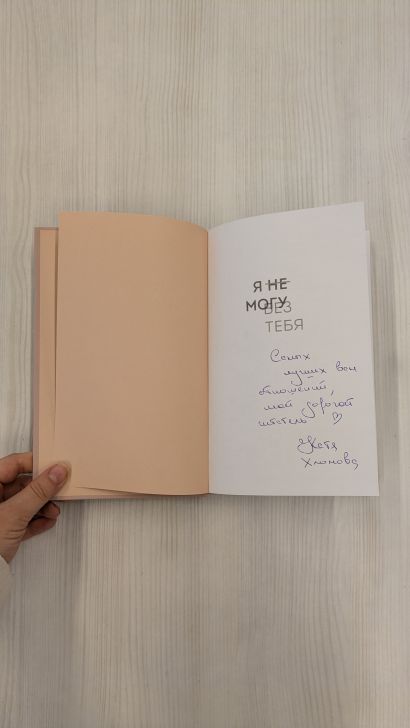 Я НЕ
МОГУ
БЕЗ
ТЕБЯ
Самых
лучших вам
отношений,
мой дорогой
читатель
Катя
Хломова